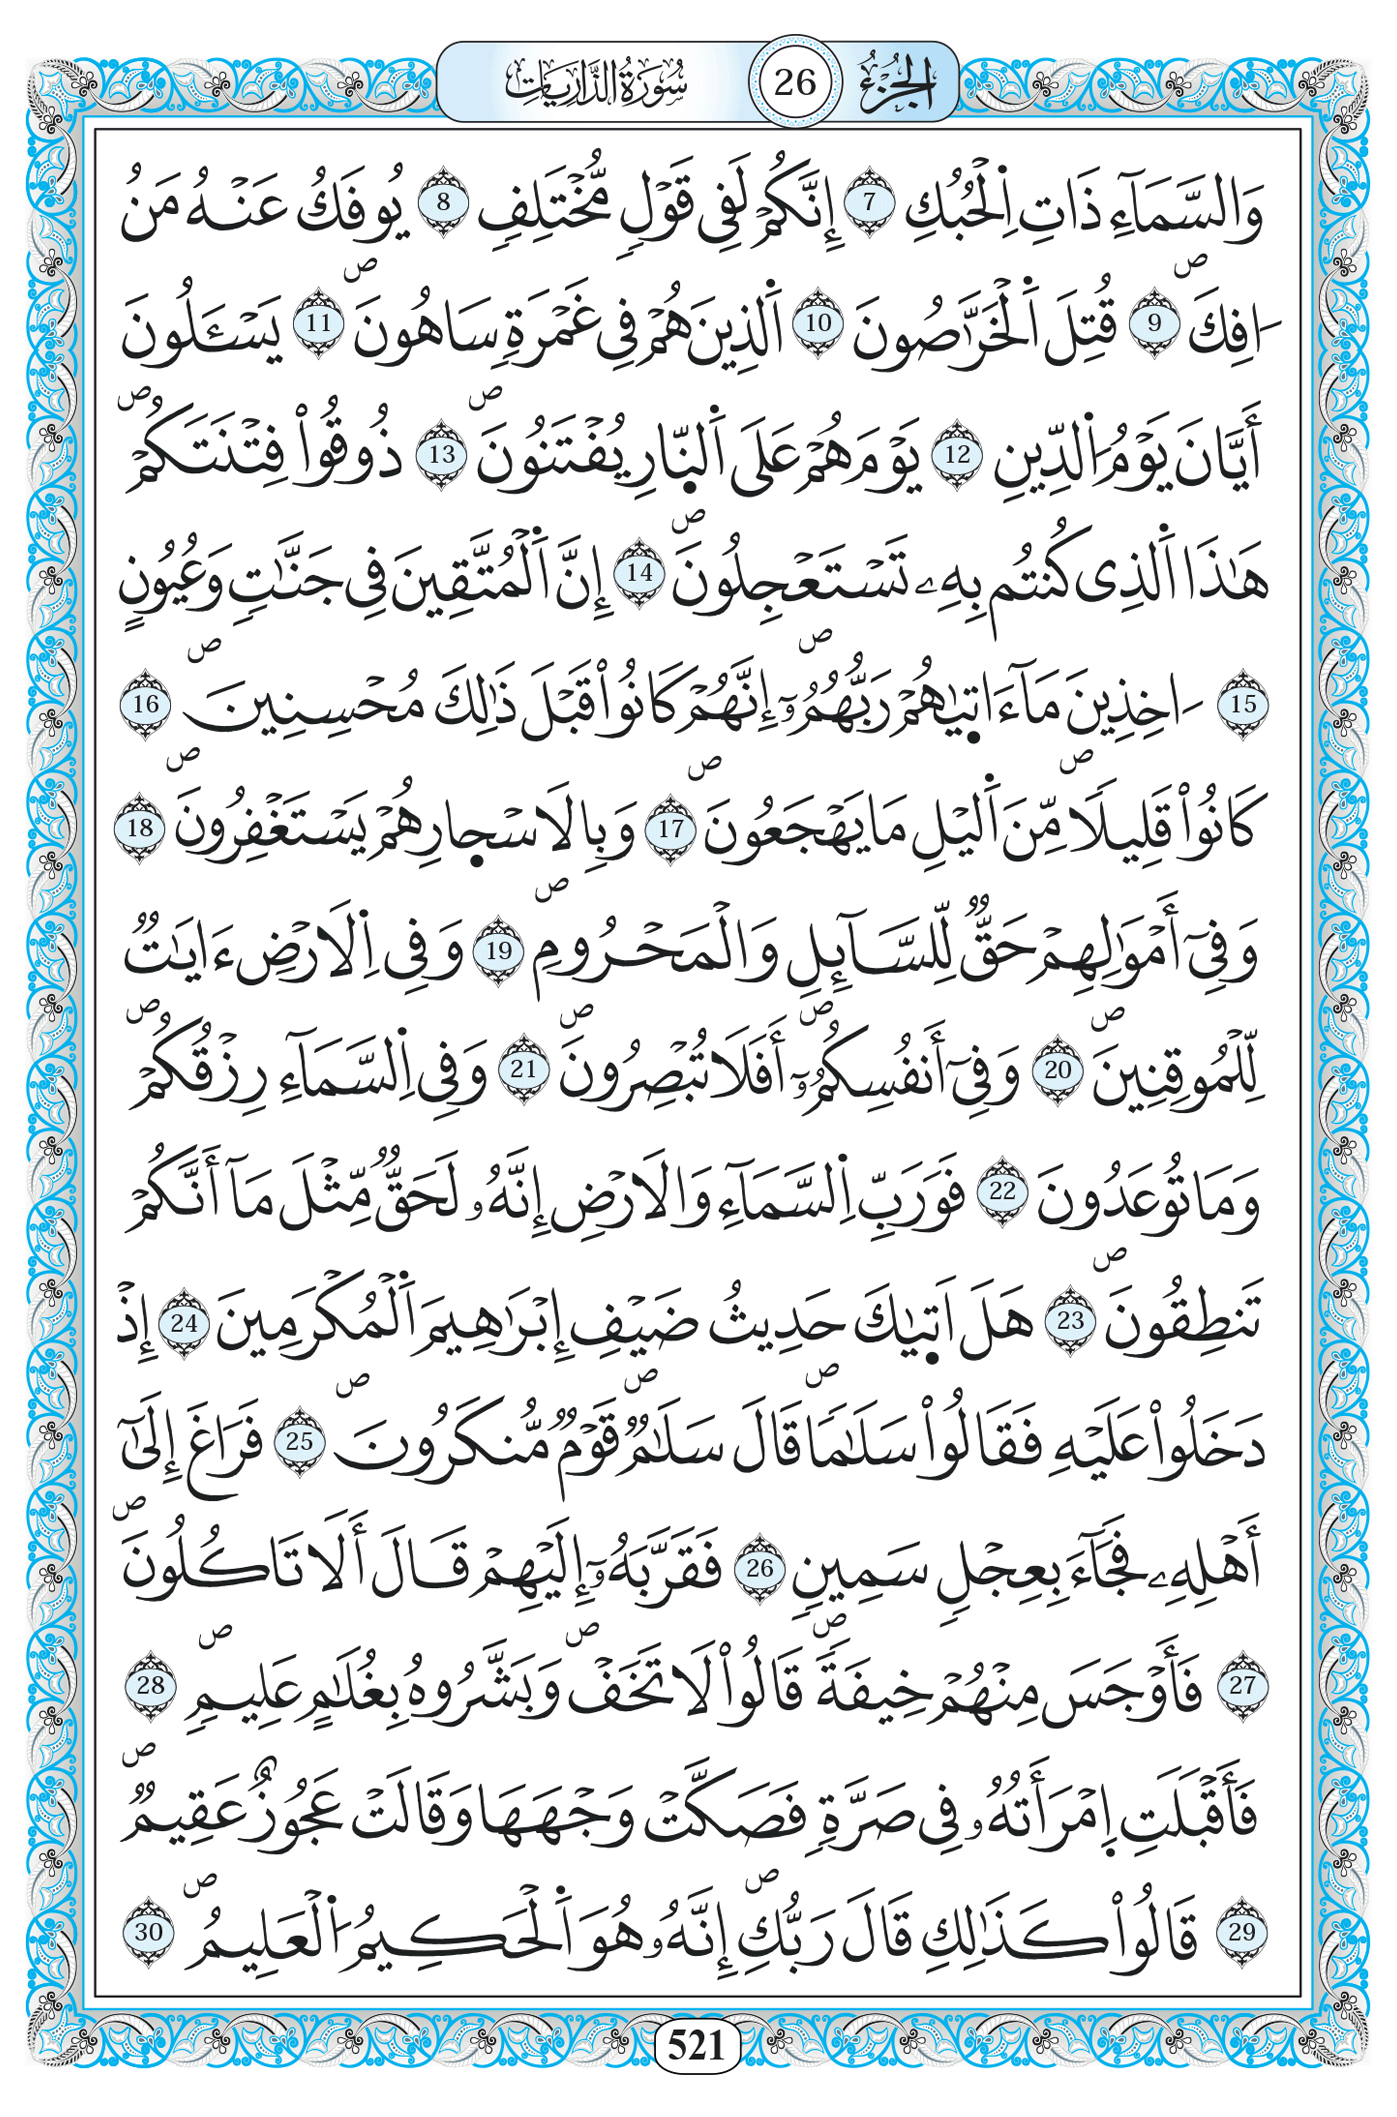 سُورَةُ الذَّارِيَاتِ 26 الجُزْءُ
وَالسَّمَآءِ ذَاتِ اِ۬لْحُبُكِ 7 إِنَّكُمْ لَفِے قَوْلٖ مُّخْتَلِفٖ 8 يُوفَكُ عَنْهُ مَنُ
ا۟فِكَۖ 9 قُتِلَ اَ۬لْخَرَّٰصُونَ 10 اَ۬لذِينَ هُمْ فِے غَمْرَةٖ سَاهُونَۖ 11 يَسْـَٔلُونَ
أَيَّانَ يَوْمُ اُ۬لدِّينِ 12 يَوْمَ هُمْ عَلَى اَ۬لنّ۪ارِ يُفْتَنُونَۖ 13 ذُوقُواْ فِتْنَتَكُمْۖ
هَٰذَا اَ۬لذِے كُنتُم بِهِۦ تَسْتَعْجِلُونَۖ 14 إِنَّ اَ۬لْمُتَّقِينَ فِے جَنَّٰتٖ وَعُيُونٍ
15 ـَٔاخِذِينَ مَآ ءَات۪يٰهُمْ رَبُّهُمُۥٓۖ إِنَّهُمْ كَانُواْ قَبْلَ ذَٰلِكَ مُحْسِنِينَۖ 16
كَانُواْ قَلِيلاٗۖ مِّنَ اَ۬ليْلِ مَا يَهْجَعُونَۖ 17 وَبِالَاسْح۪ارِ هُمْ يَسْتَغْفِرُونَۖ 18
وَفِےٓ أَمْوَٰلِهِمْ حَقّٞ لِّلسَّآئِلِ وَالْمَحْرُومِۖ 19 وَفِے اِ۬لَارْضِ ءَايَٰتٞ
لِّلْمُوقِنِينَۖ 20 وَفِےٓ أَنفُسِكُمُۥٓۖ أَفَلَا تُبْصِرُونَۖ 21 وَفِے اِ۬لسَّمَآءِ رِزْقُكُمْۖ
وَمَا تُوعَدُونَ 22 فَوَرَبِّ اِ۬لسَّمَآءِ وَالَارْضِ إِنَّهُۥ لَحَقّٞ مِّثْلَ مَآ أَنَّكُمْ
تَنطِقُونَۖ 23 هَلَ ات۪يٰكَ حَدِيثُ ضَيْفِ إِبْرَٰهِيمَ اَ۬لْمُكْرَمِينَ 24 إِذْ
دَخَلُواْ عَلَيْهِ فَقَالُواْ سَلَٰماٗۖ قَالَ سَلَٰمٞۖ قَوْمٞ مُّنكَرُونَۖ 25 فَرَاغَ إِلَىٰٓ
أَهْلِهِۦ فَجَآءَ بِعِجْلٖ سَمِينٖ 26 فَقَرَّبَهُۥٓ إِلَيْهِمْ قَالَ أَلَا تَاكُلُونَۖ
27 فَأَوْجَسَ مِنْهُمْ خِيفَةٗۖ قَالُواْ لَا تَخَفْۖ وَبَشَّرُوهُ بِغُلَٰمٍ عَلِيمٖۖ 28
فَأَقْبَلَتِ اِ۪مْرَأَتُهُۥ فِے صَرَّةٖ فَصَكَّتْ وَجْهَهَا وَقَالَتْ عَجُوزٌ عَقِيمٞۖ
29 قَالُواْ كَذَٰلِكِ قَالَ رَبُّكِۖ إِنَّهُۥ هُوَ اَ۬لْحَكِيمُ اُ۬لْعَلِيمُۖ 30
521